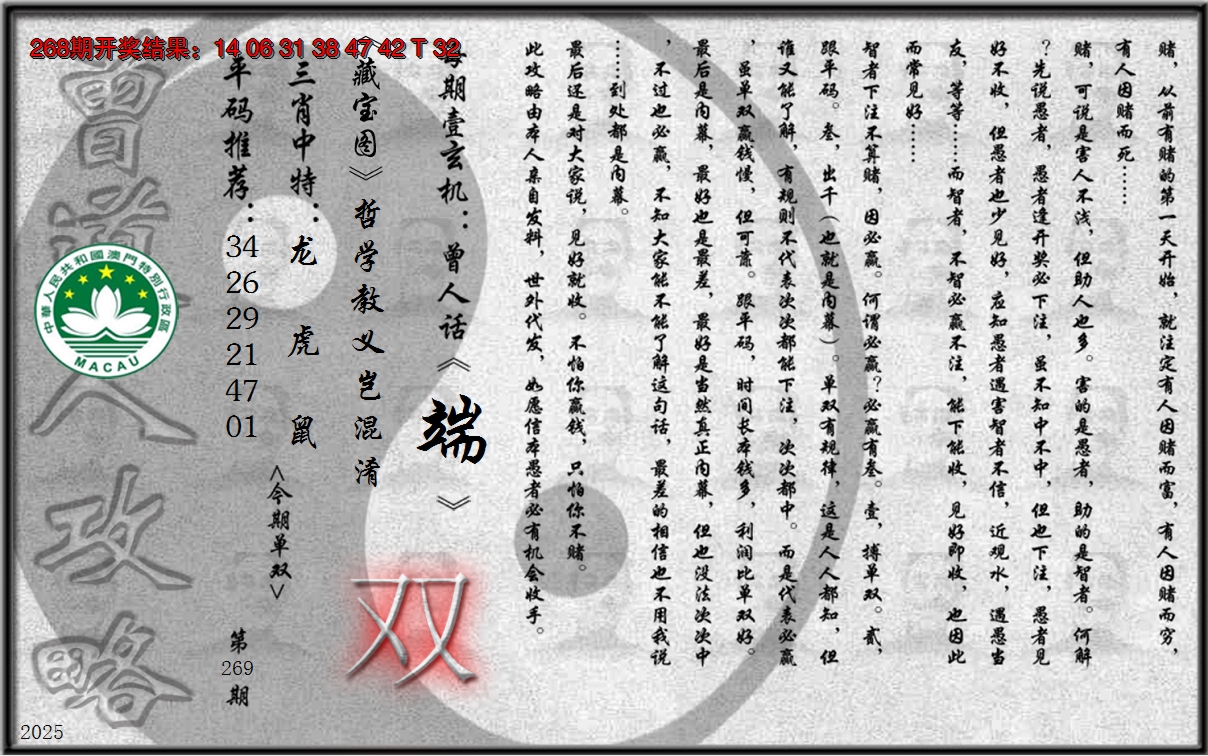 268期开奖结果：14 06 31 38 47 42 T 32
赌，从前有赌的第一天开始，就注定有人因赌而富，有人因赌而穷，
有人因赌而死……
赌，可说是害人不浅，但助人也多。害的是愚者，助的是智者。何解
？先说愚者，愚者逢开奖必下注，虽不知中不中，但也下注，愚者见
好不收，但愚者也少见好，应知愚者遇害智者不信，近观水，遇愚当
友，等等……而智者，不智必赢不注，能下能收，见好即收，也因此
而常见好……
智者下注不算赌，因必赢。何谓必赢？必赢有叁。壹，搏单双。贰，
跟平码。叁，出千（也就是内幕）。单双有规律，这是人人都知，但
谁又能了解，有规则不代表次次都能下注，次次都中。而是代表必赢
，虽单双赢钱慢，但可靠。跟平码，时间长本钱多，利润比单双好。
最后是内幕，最好也是最差，最好是当然真正内幕，但也没法次次中
，不过也必赢，不知大家能不能了解这句话，最差的相信也不用我说
……到处都是内幕。
最后还是对大家说，见好就收。不怕你赢钱，只怕你不赌。
此攻略由本人亲自发料，世外代发，如愿信本愚者必有机会收手。
每期壹玄机：曾人话《端》
《藏宝图》哲学教义岂混淆
双
三肖中特：龙 虎 鼠
<今期单双>
平码推荐：34 26 29 21 47 01
第269期
曾道人攻略
中華人民共和國澳門特別行政區
MACAU
2025